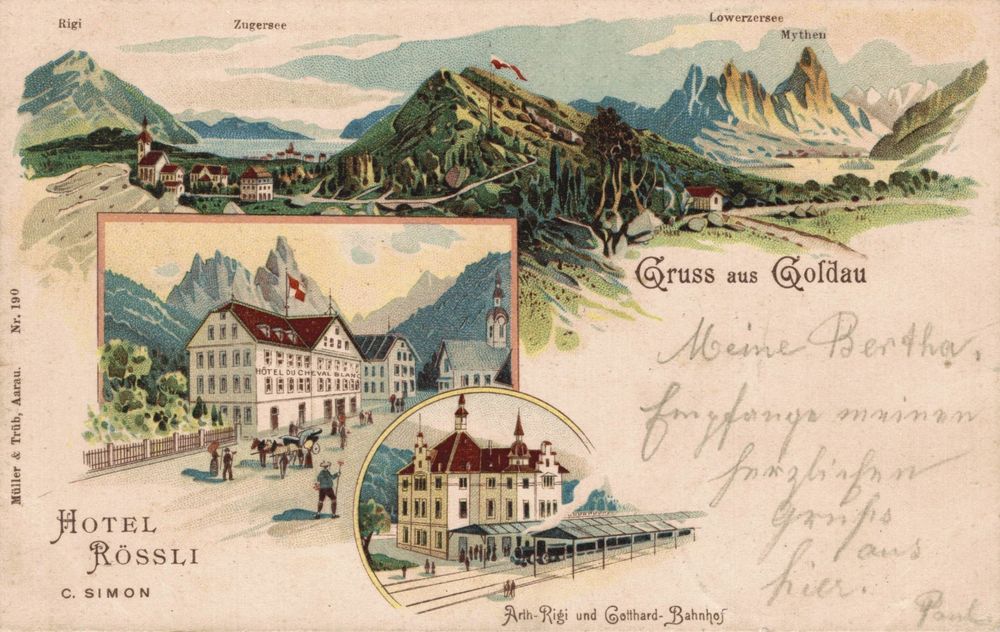 Rigi
Zugersee
Lowerzersee
Mythen
Gruss aus Goldau
HÔTEL DU CHEVAL BLANC
Müller & Trüb, Aarau. Nr. 190
HOTEL
RÖSSLI
C. SIMON
Arth-Rigi und Gotthard-Bahnhof
Meine Bertha.
Empfange meinen
herzlichen
Gruss
aus
hier.
Paul.